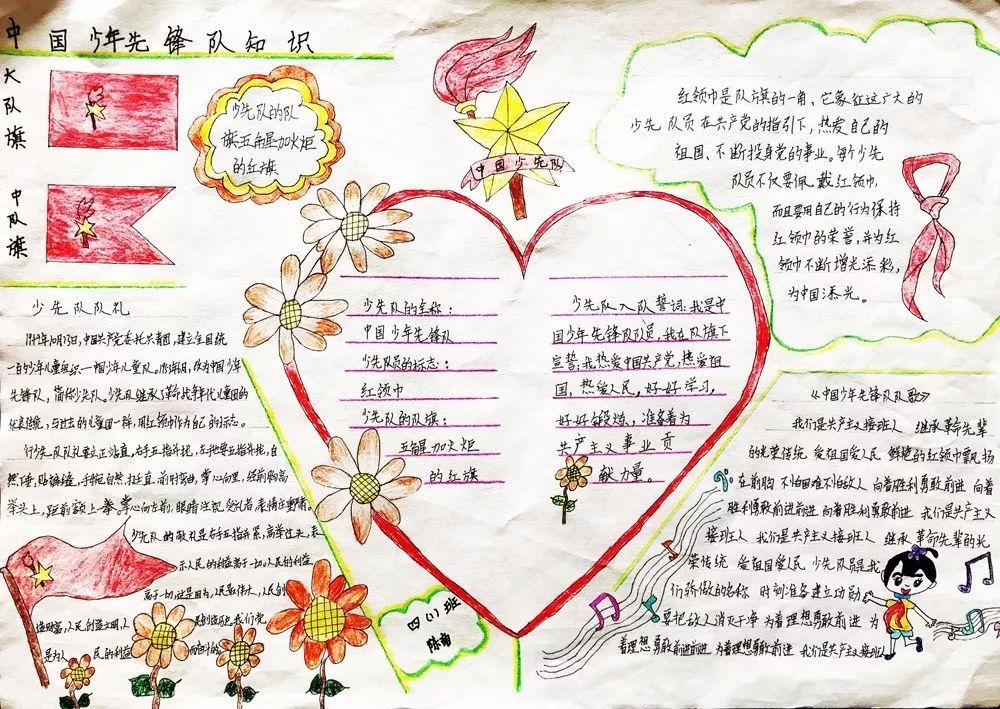 中国少年先锋队知识
大队旗
中队旗
少先队的队
旗五角星加火炬
的红旗
中国少先队
红领巾是队旗的一角、它象征这广大的
少先队员在共产党的指引下,热爱自己的
祖国、不断投身党的事业。每个少先
队员不仅要佩戴红领巾
而且要用自己的行为保持
红领巾的荣誉,并为红
领巾不断增光添彩,
为中国添光。
少先队队礼
1949年10月13日,中国共产党委托共青团,建立全国统
一的少年儿童组织一
先锋队,简称少先队。少先队继承了革命战争年代儿童团的
一样,用红领巾作为自己的标志。
行少先队队礼要立正站直,右手五指并拢,
举头上,
少先队的敬礼是右手五指并紧,高举过头,表
示人民的利益高于一切。人民的利益
高于一切
是为人民的利益
少先队的全称:
中国少年先锋队
少先队员的标志:
红领巾
少先队的队旗:
五角星加火炬
的红旗
少先队入队誓词:我是中
国少年先锋队队员,我在队旗下
宣誓:我热爱中国共产党,热爱祖
国,热爱人民,好好学习,
好好锻炼,准备着为
共产主义事业贡
献力量。
四(1)班
《中国少年先锋队队歌》
我们是共产主义接班人 继承革命先辈
的光荣传统 爱祖国爱人民 鲜艳的红领巾飘扬
在前胸 不怕困难不怕敌人 向着胜利勇敢前进 向着
胜利勇敢前进前进 向着胜利勇敢前进 我们是共产主义
接班人 我们是共产主义接班人 继承革命先辈的光
荣传统 爱祖国爱人民 少先队员是我
们骄傲的名称 时刻准备建立功勋
要把敌人消灭干净 为着理想勇敢前进 为
着理想勇敢前进前进 为着理想勇敢前进 我们是共产主义接班人